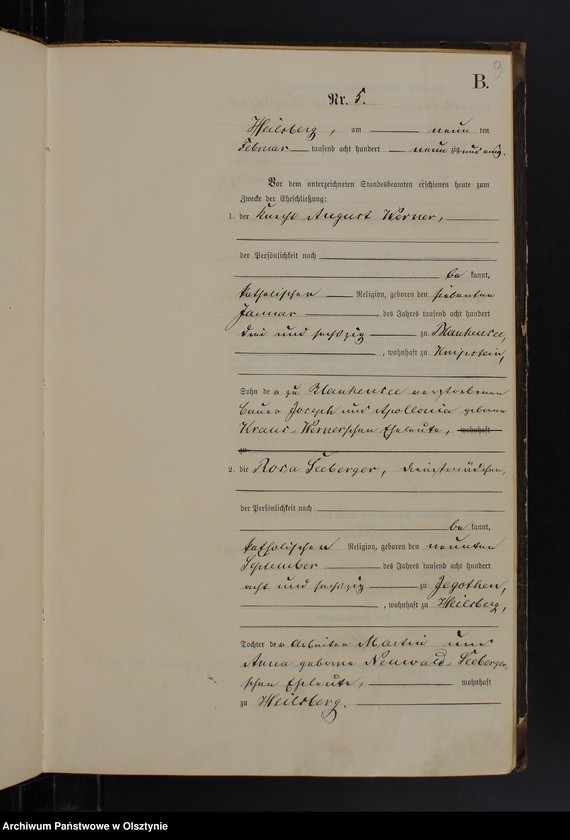 9
B.
Nr. 5.
Heilsberg, am neun ten
Februar tausend acht hundert neun und
Vor dem unterzeichneten Standesbeamten erschienen heute zum
Zwecke der Eheschließung:
1. der Knecht August Werner,
der Persönlichkeit nach
be kannt,
katholischer Religion, geboren den siebenten
Januar des Jahres tausend acht hundert
drei und sechszig zu Blankensee,
, wohnhaft zu Knipstein,
Sohn der zu Blankensee verstorbenen
Bauer Joseph und Apollonia geborene
Kraus-Werner'schen Eheleute, wohnhaft
zu
2. die Rosa Seeberger, Dienstmädchen,
der Persönlichkeit nach
be kannt,
katholischer Religion, geboren den neunten
September des Jahres tausend acht hundert
acht und sechszig zu Jegothen,
, wohnhaft zu Heilsberg,
Tochter der Arbeiter Martin und
Anna geborne Neuwald-Seeberger-
schen Eheleute, wohnhaft
zu Heilsberg.
Archiwum Państwowe w Olsztynie